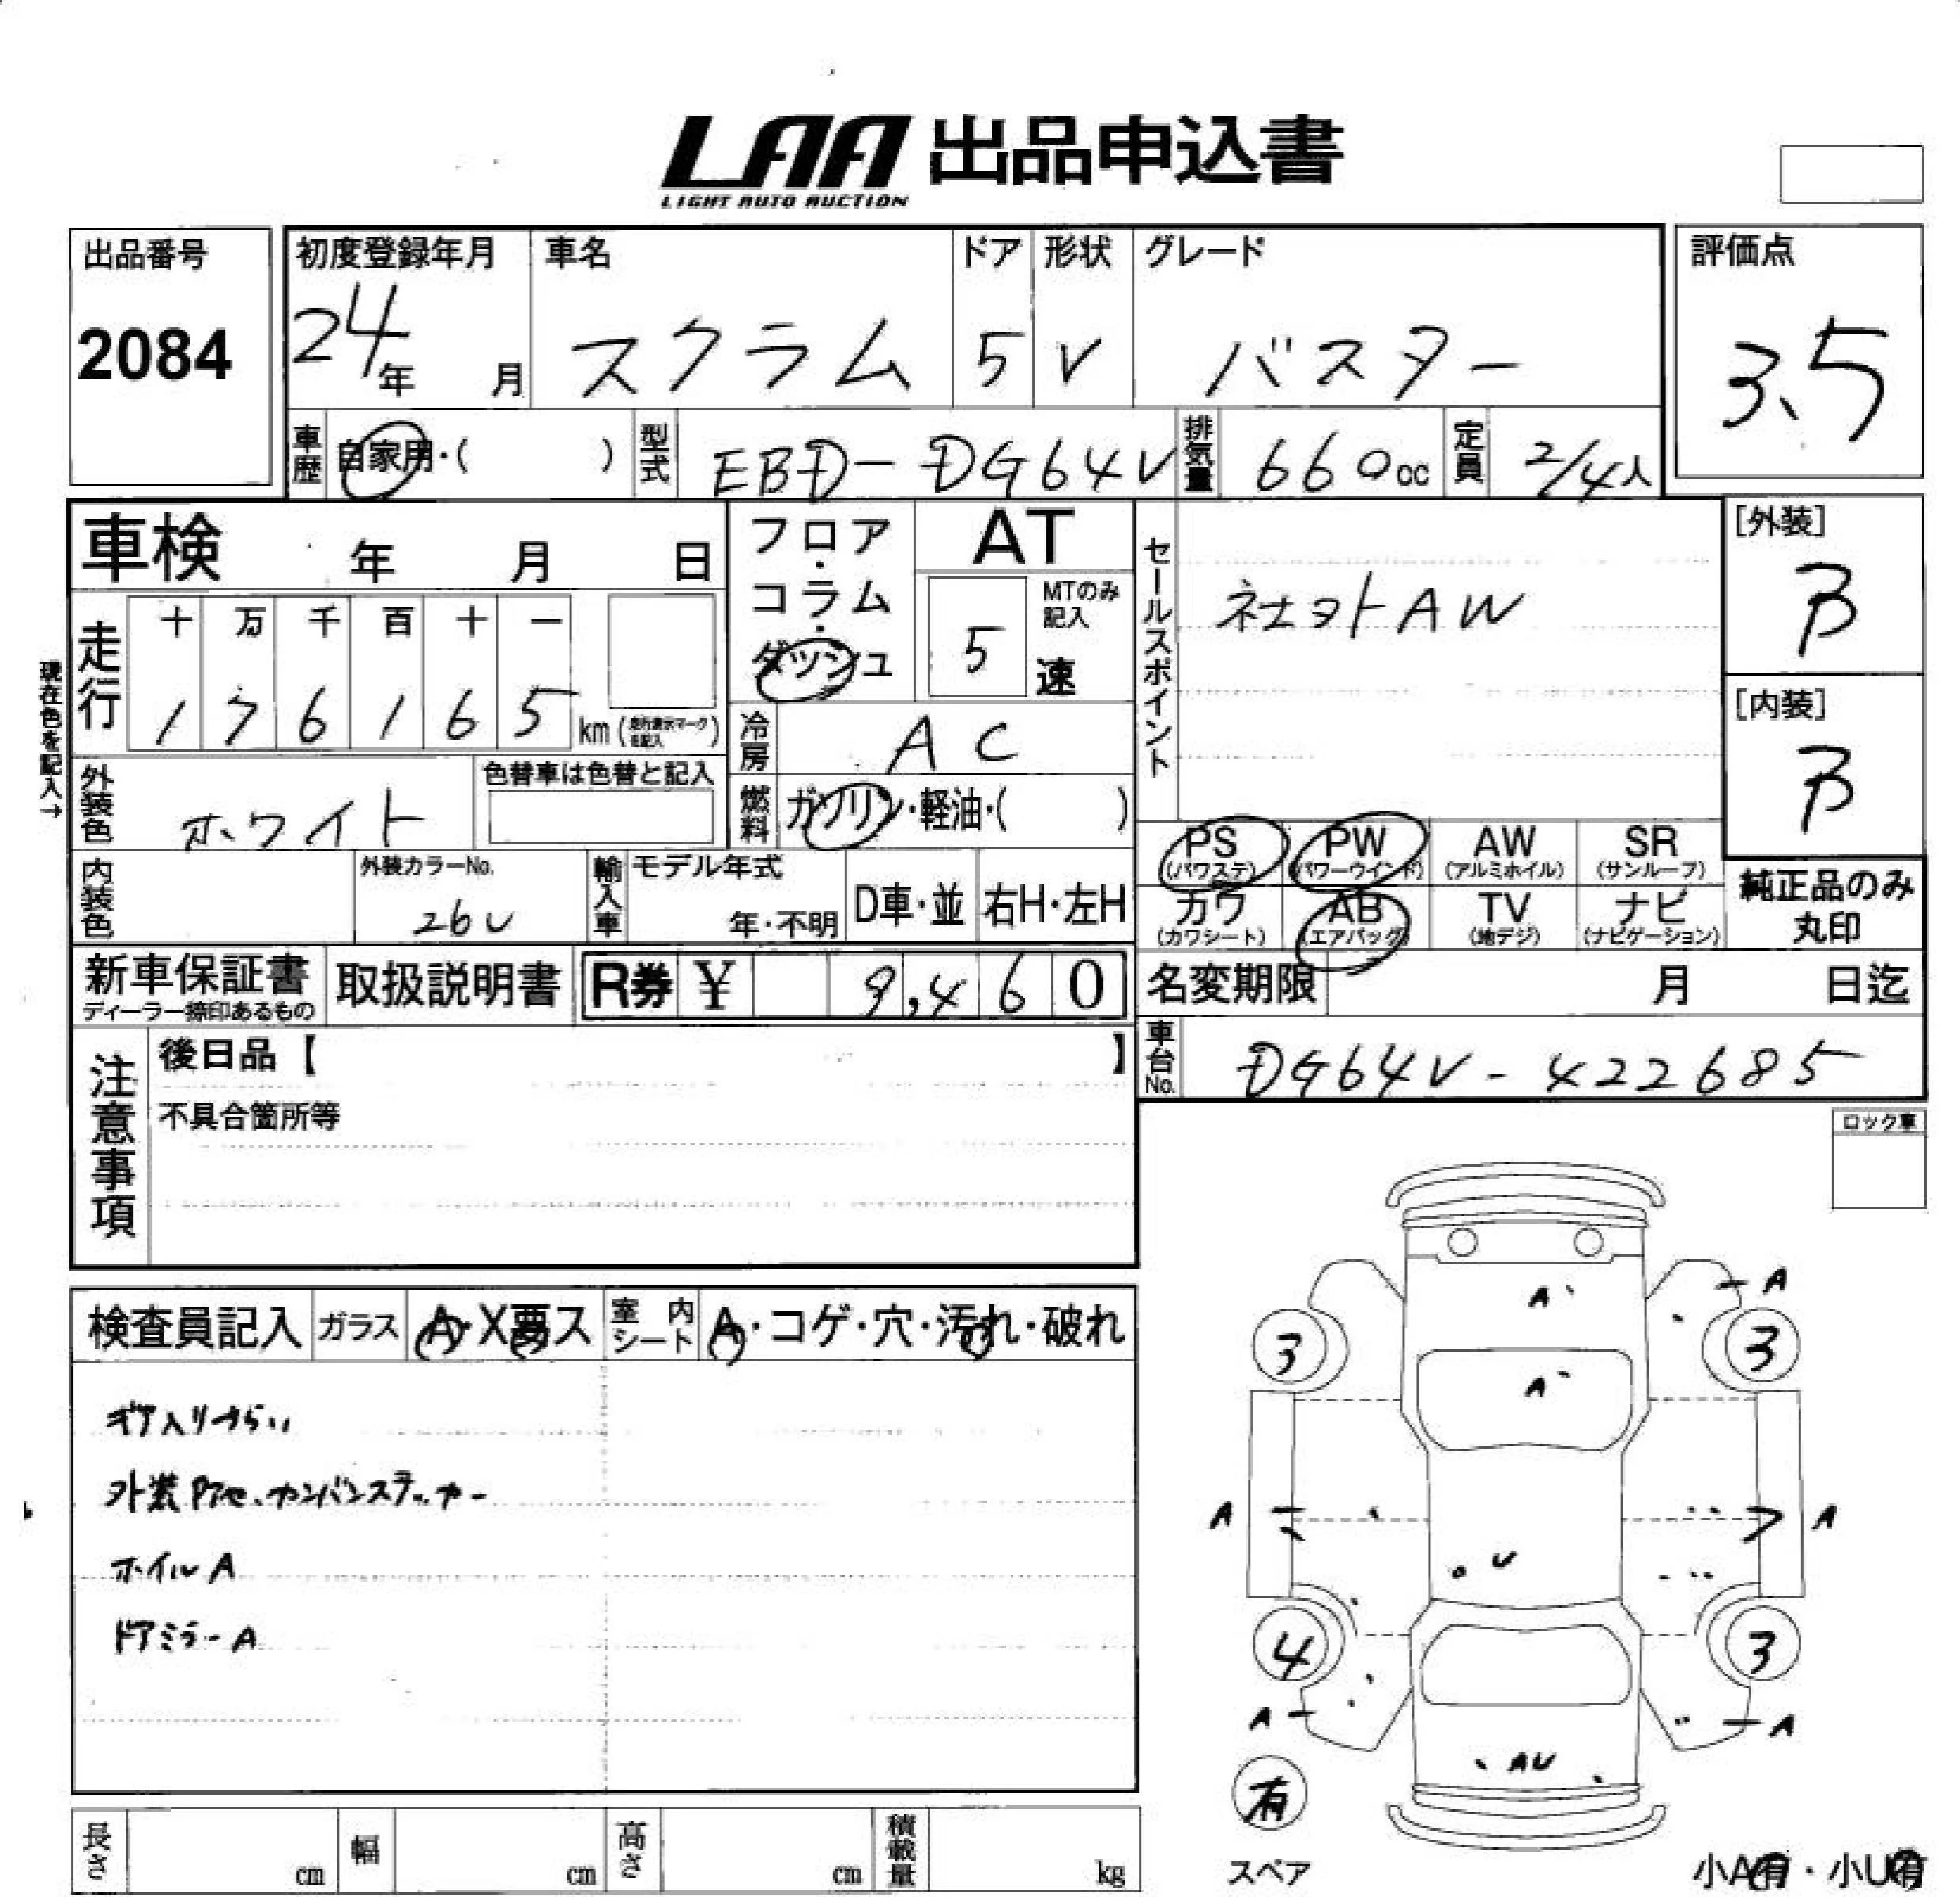 LAA 出品申込書
LIGHT AUTO AUCTION
出品番号
2084
初度登録年月
24年 月
車名
スクラム
ドア
5
形状
V
グレード
バスター
評価点
3.5
車歴
自家用・( )
型式
EBD-DG64V
排気量
660cc
定員
2/4人
車検 年 月 日
フロア・コラム・ダッシュ
AT
5速
MTのみ記入
セールスポイント
社外AW
[外装]
B
[内装]
B
現在色を記入→
走行
十 万 千 百 十 一
1 7 6 1 6 5 km (走行表示マークを記入)
冷房
AC
外装色
ホワイト
色替車は色替と記入
燃料
ガソリン・軽油・( )
PS (パワステ)
PW (パワーウインド)
AW (アルミホイル)
SR (サンルーフ)
カワ (カワシート)
AB (エアバック)
TV (地デジ)
ナビ (ナビゲーション)
純正品のみ丸印
内装色
外装カラーNo.
26U
輸入車
モデル年式
年・不明
D車・並
右H・左H
新車保証書
ディーラー捺印あるもの
取扱説明書
R券 ¥ 9,460
名変期限 月 日迄
車台No.
DG64V-422685
注意事項
後日品【 】
不具合箇所等
ロック車
検査員記入
ガラス
A・X要ス
室内シート
A・コゲ・穴・汚れ・破れ
ギア入りづらい
外装アセ、カンバンステッカー
ホイルA
ドアミラーA
A
A
3
3
A
A
A
U
4
3
A
A
AU
有
スペア
小A有・小U有
長さ cm
幅 cm
高さ cm
積載量 kg